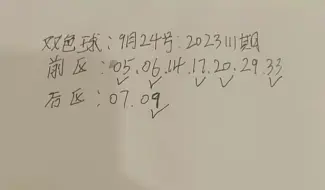 双色球:9月24号:2023111期
前区:05.06.14.17.20.29.33
后区:07.09